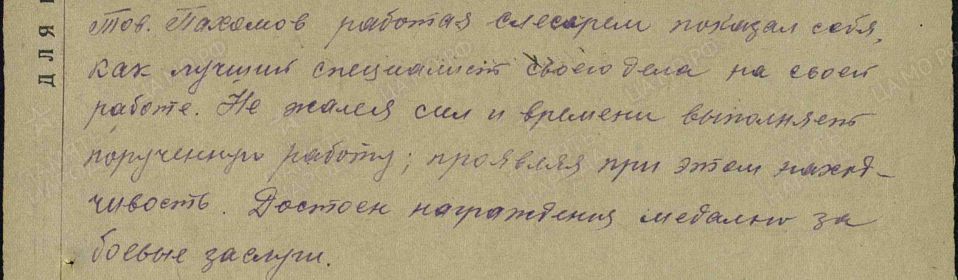 Тов. Пахомов работая слесарем показал себя,
как лучший специалист своего дела на своей
работе. Не жалея сил и времени выполняет
порученную работу; проявляя при этом наход-
чивость. Достоен награждения медалью за
боевые заслуги.
ДЛЯ